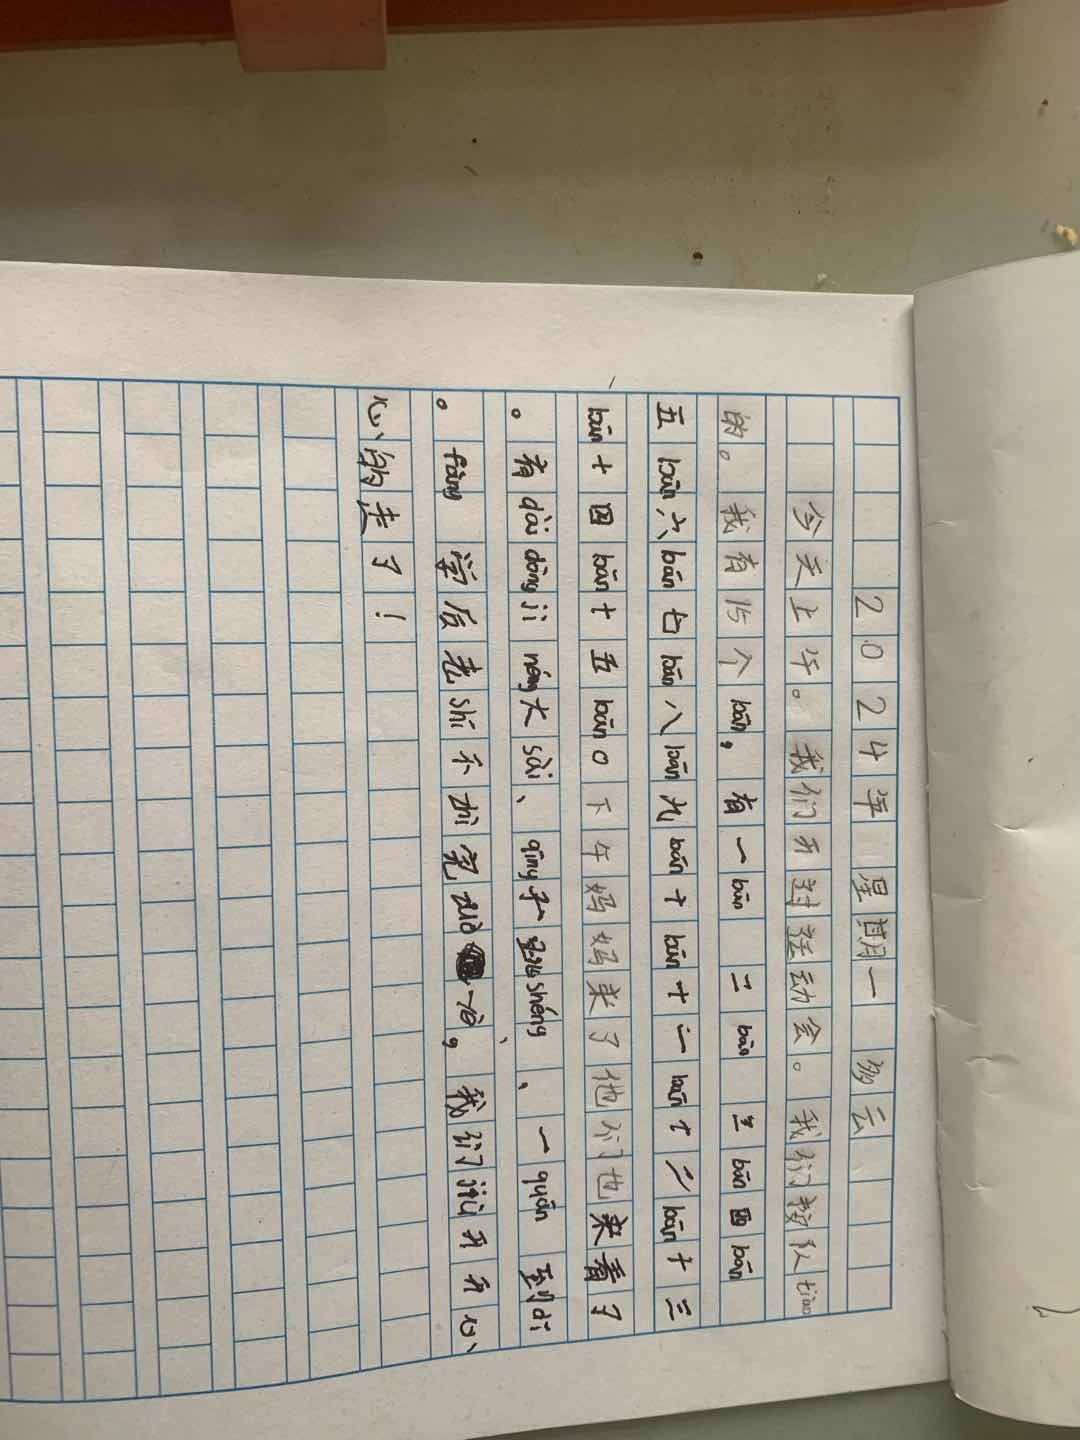 2024年 星期一 多云
今天上午。我们开过运动会。我们按队tiào
的。我有15个bān，有一bān 二bān 三bān四bān
五bān六bān七bān八bān九bān十bān十一bān十二bān十三
bān十四bān十五bān。下午妈妈来了他们也来看了
。有dài dòng jì néng大sài、 shéng、一quān到dǐ
。fàng学后老shī不 我们jiù开开心
心的走了！